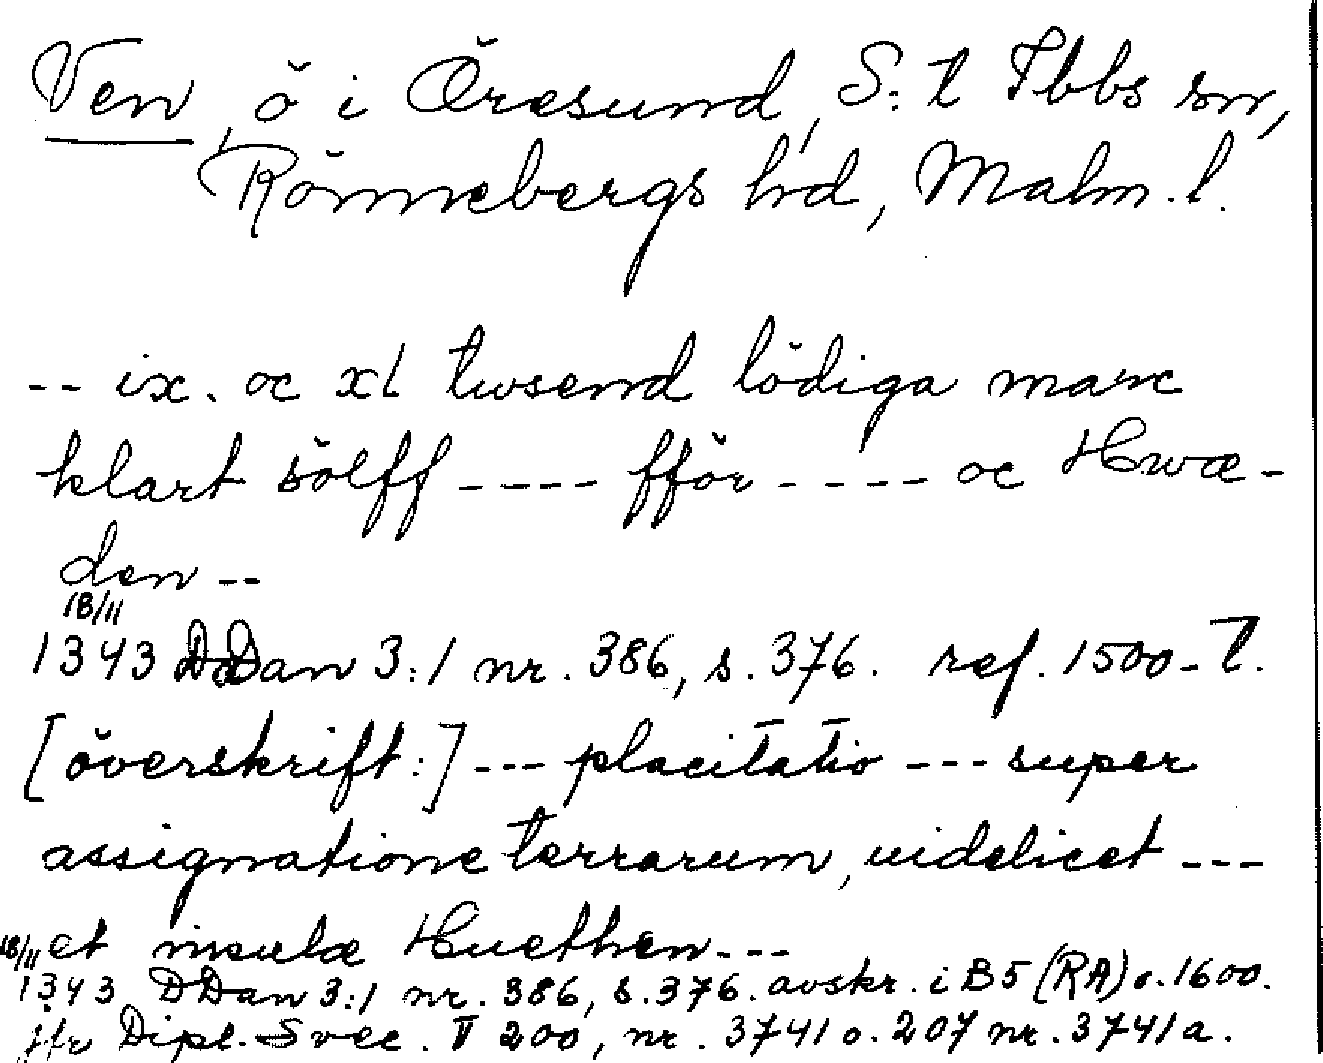 Ven, ö i Öresund, S:t Ibbs sn,
Rönnebergs hd, Malm. l.
-- ix. oc xl twsend lödiga marc
klart sölff ---- fför ---- oc Hwæ-
den --
18/11
1343 DDan 3:1 nr. 386, s. 376. ref. 1500-t.
[överskrift:] --- placitatio --- super
assignatione terrarum, uidelicet ---
et insulæ Huethen ---
18/11
1343 DDan 3:1 nr. 386, s. 376. avskr. i B5 (RA) o. 1600.
jfr Dipl. Svec. V 200, nr. 3741 o. 207 nr. 3741a.